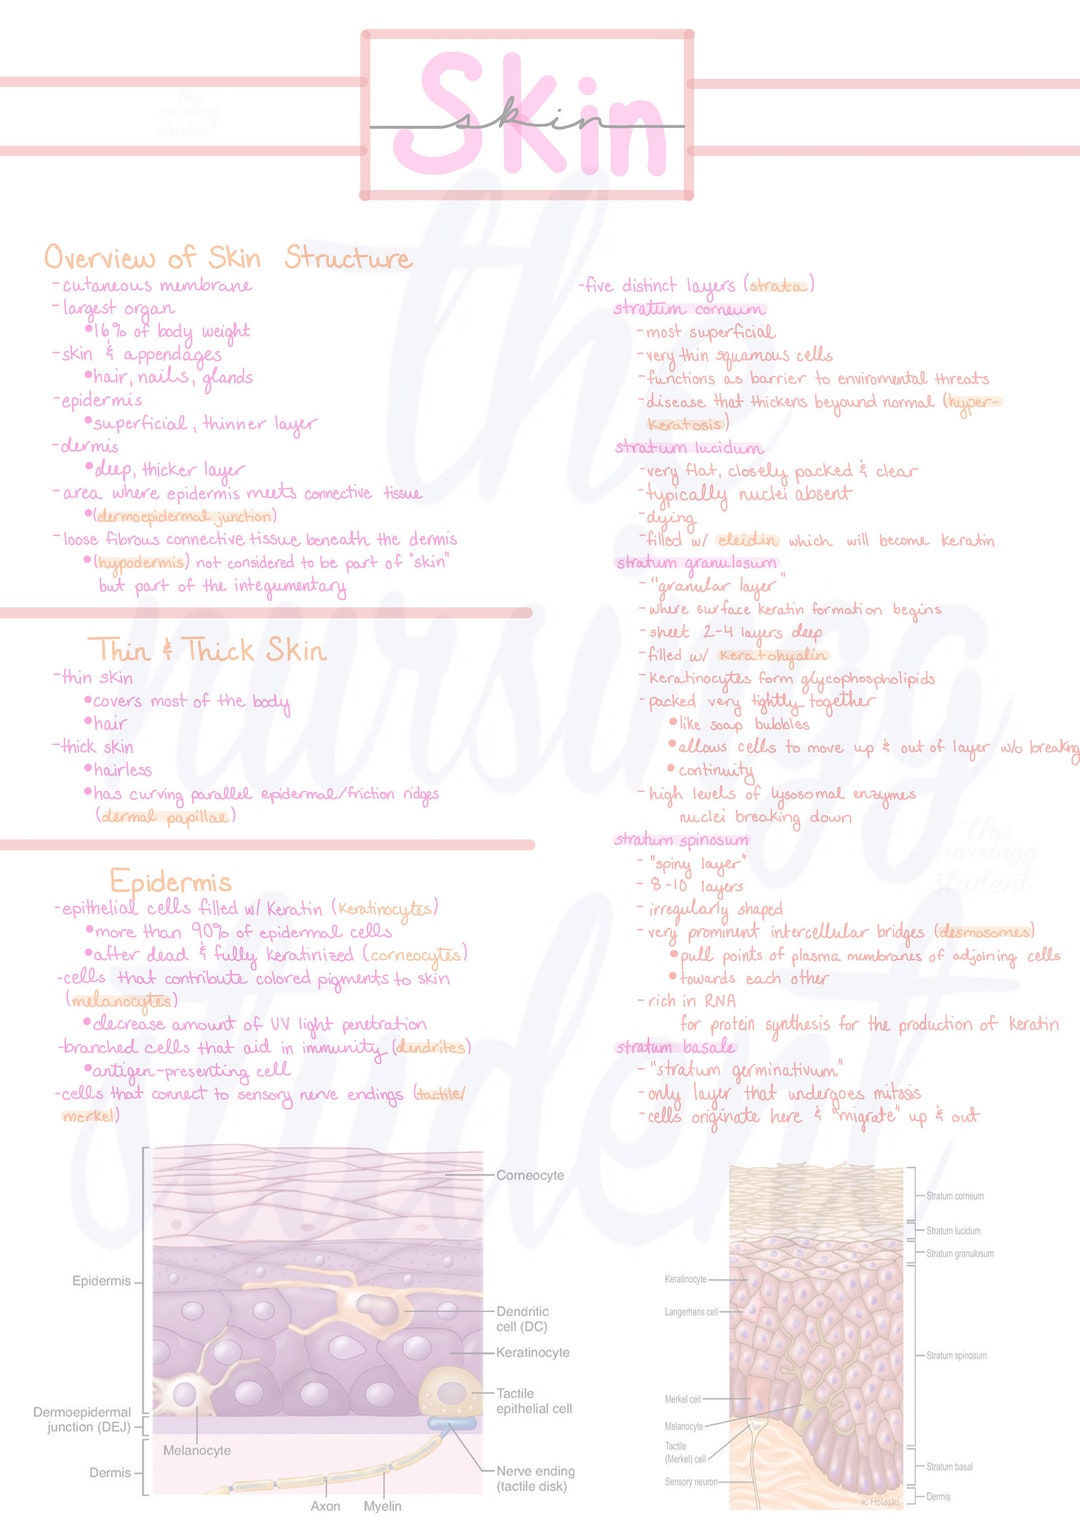 Skin
skin
the
nursingg
student
Overview of Skin Structure
-cutaneous membrane
-largest organ
•16% of body weight
-skin & appendages
•hair, nails, glands
-epidermis
•superficial, thinner layer
-dermis
•deep, thicker layer
-area where epidermis meets connective tissue
•(dermoepidermal junction)
-loose fibrous connective tissue beneath the dermis
•(hypodermis) not considered to be part of "skin"
but part of the integumentary
Thin & Thick Skin
-thin skin
•covers most of the body
•hair
-thick skin
•hairless
•has curving parallel epidermal/friction ridges
(dermal papillae)
Epidermis
-epithelial cells filled w/ Keratin (keratinocytes)
•more than 90% of epidermal cells
•after dead & fully keratinized (corneocytes)
-cells that contribute colored pigments to skin
(melanocytes)
•decrease amount of UV light penetration
-branched cells that aid in immunity (dendrites)
•antigen-presenting cell
-cells that connect to sensory nerve endings (tactile/
merkel)
-five distinct layers (strata)
stratum corneum
-most superficial
-very thin squamous cells
-functions as barrier to enviromental threats
-disease that thickens beyound normal (hyper-
keratosis)
stratum lucidum
-very flat, closely packed & clear
-typically nuclei absent
-dying
-filled w/ eleidin which will become keratin
stratum granulosum
-"granular layer"
-where surface keratin formation begins
-sheet 2-4 layers deep
-filled w/ keratohyalin
-keratinocytes form glycophospholipids
-packed very tightly together
•like soap bubbles
•allows cells to move up & out of layer w/o breaking
•continuity
-high levels of lysosomal enzymes
nuclei breaking down
stratum spinosum
-"spiny layer"
-8-10 layers
-irregularly shaped
-very prominent intercellular bridges (desmosomes)
•pull points of plasma membranes of adjoining cells
•towards each other
-rich in RNA
for protein synthesis for the production of keratin
stratum basale
-"stratum germinativum"
-only layer that undergoes mitosis
-cells originate here & "migrate" up & out
the
nursingg
student
the
nursingg
student
Corneocyte
Epidermis
Dendritic
cell (DC)
Keratinocyte
Tactile
epithelial cell
Dermoepidermal
junction (DEJ)
Melanocyte
Dermis
Nerve ending
(tactile disk)
Axon
Myelin
Stratum corneum
Stratum lucidum
Stratum granulosum
Keratinocyte
Langerhans cell
Stratum spinosum
Merkel cell
Melanocyte
Tactile
(Merkel) cell
Sensory neuron
Stratum basal
Dermis
K. Holoski